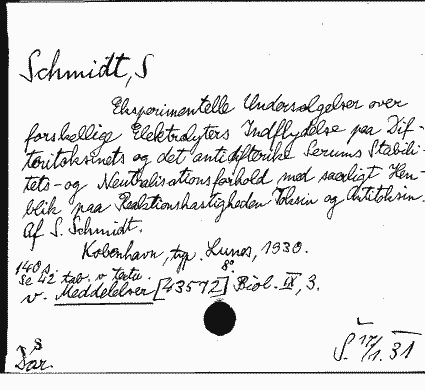 Schmidt, S
Eksperimentelle Undersøgelser over
forskellige Elektrolyters Indflydelse paa Dif-
teritoksinets og det antidifteriske Serums Stabili-
tets- og Neutralisationsforhold med særligt Hen-
blik paa Reaktionshastigheden Toksin og Antitoksin.
Af S. Schmidt.
København, typ. Lunos, 1930.
140 s. 8°
42 tab. v textu.
v. Meddelelser [43572] Biol. IX, 3.
S. 17/1. 31